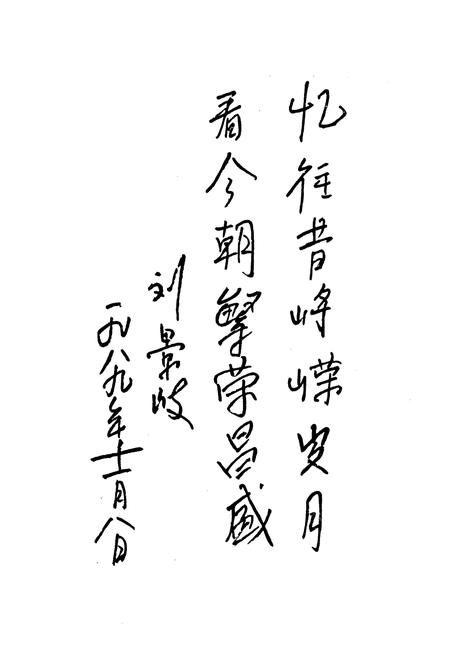 忆往昔峥嵘岁月
看今朝繁荣昌盛
刘景岐
一九八九年十一月八日